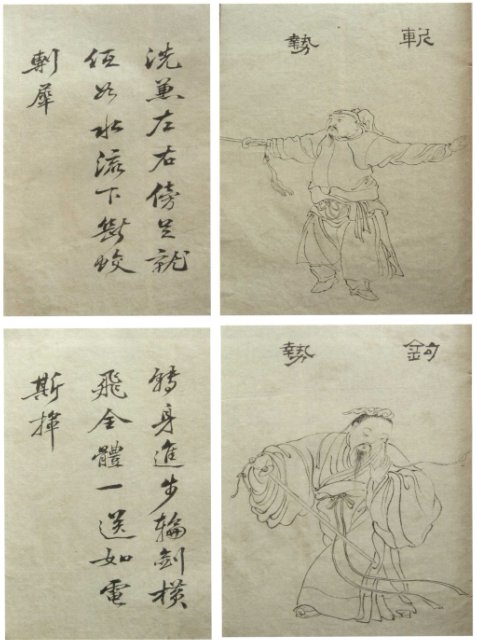 勢
洗兼左右傍足就
低如水流下斷蛟
犀
鉤勢
轉身進步輪劍橫
飛全體一送如電
斯揮